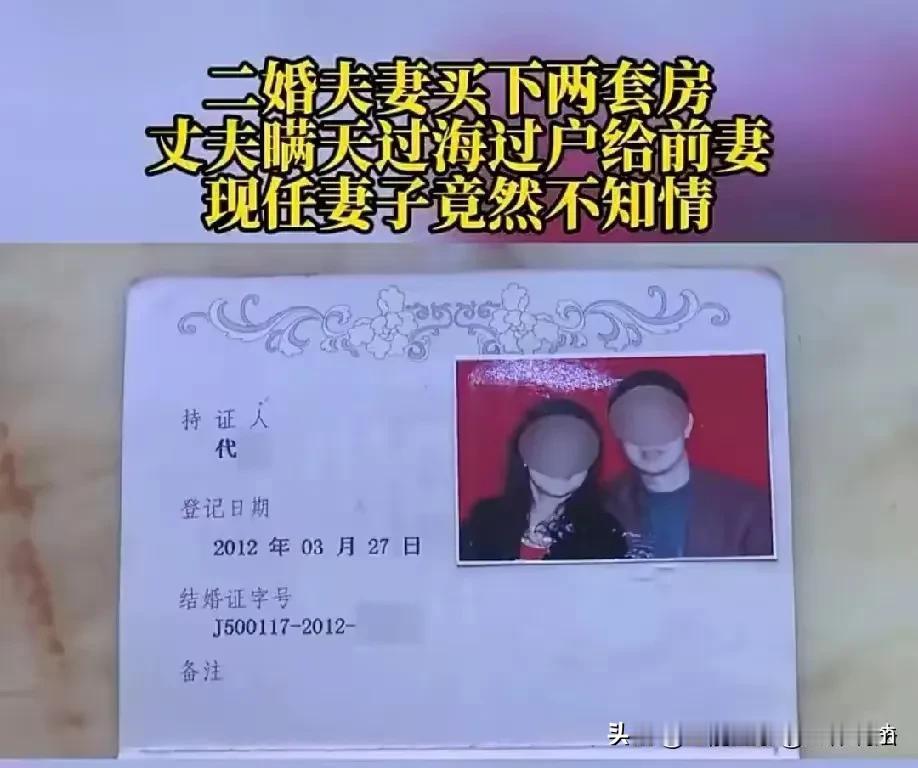 二婚夫妻买下两套房
丈夫瞒天过海过户给前妻
现任妻子竟然不知情
持证人
代
登记日期
2012 年 03 月 27 日
结婚证字号
J500117-2012-
备注
头